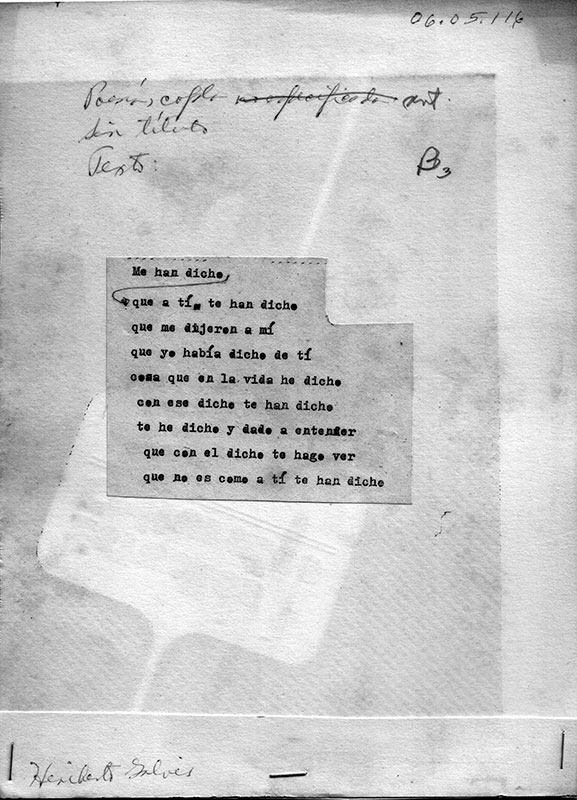 06.05.116
Poesía, copla no especificada ant.
Sin título
Texto:
B3
Me han dicho,
que a tí, te han dicho
que me dijeron a mí
que yo había dicho de tí
cosa que en la vida he dicho
con ese dicho te han dicho
te he dicho y dado a entender
que con el dicho te hago ver
que no es como a tí te han dicho
Heriberto Galvis